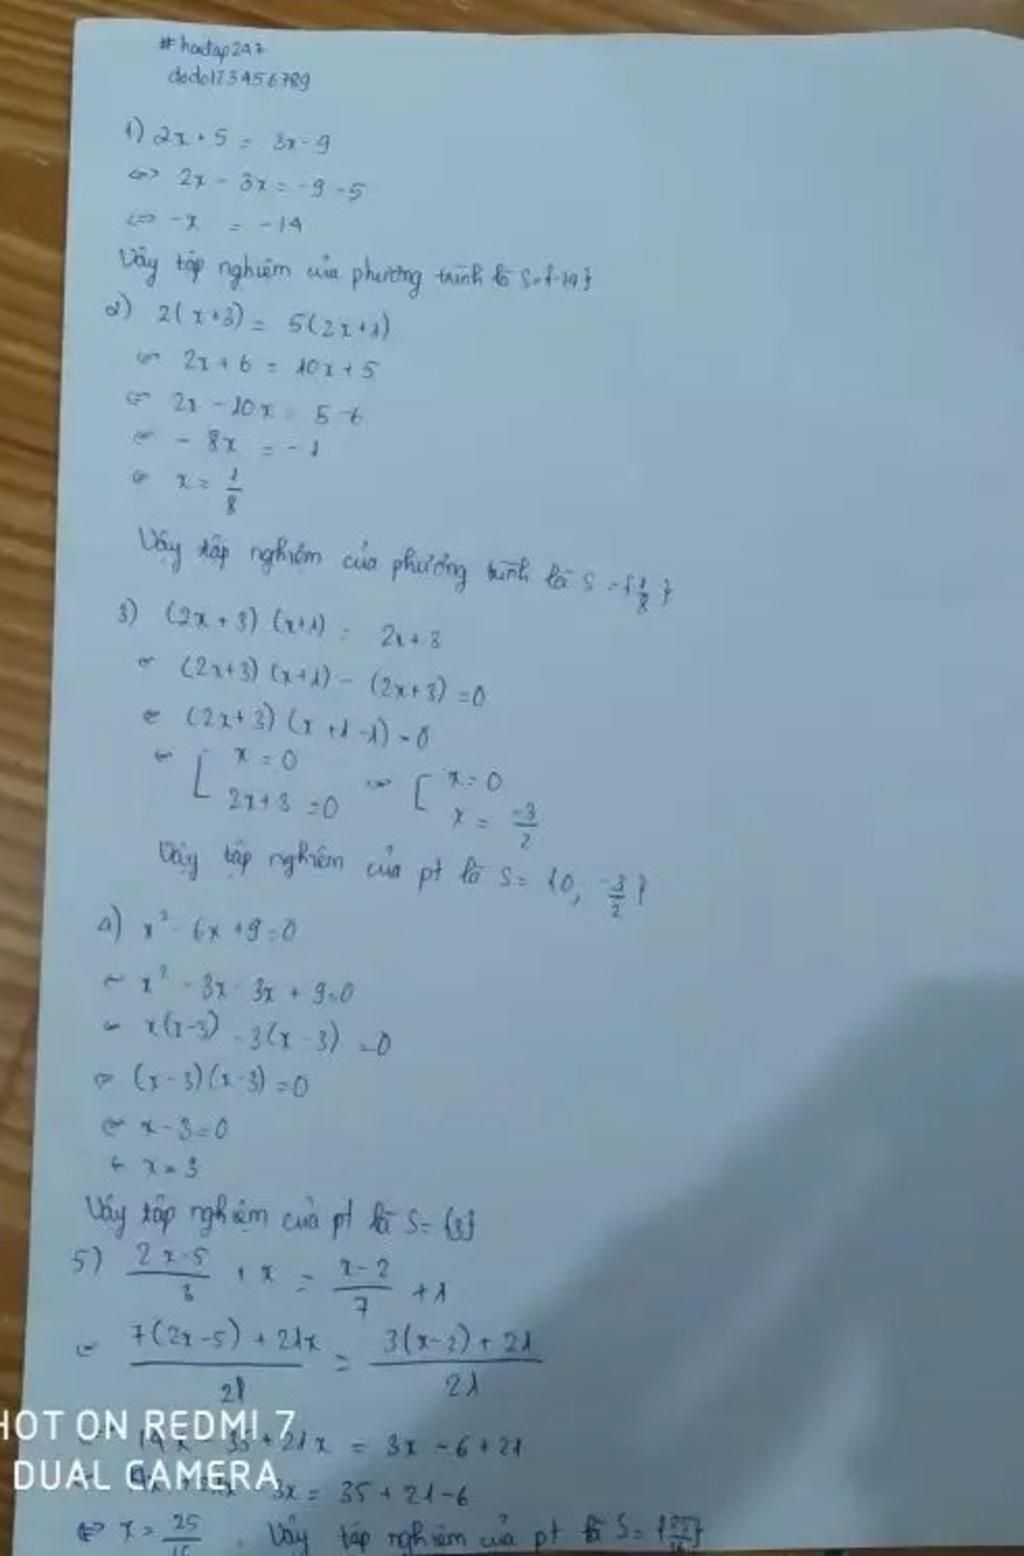 #hoctap247
dodo123456789
1) 2x + 5 = 3x - 9
<=> 2x - 3x = -9 - 5
<=> -x = -14
Vậy tập nghiệm của phương trình là S = {-14}
2) 2(x+3) = 5(2x+1)
<=> 2x + 6 = 10x + 5
<=> 2x - 10x = 5 - 6
<=> - 8x = - 1
<=> x = 1/8
Vậy tập nghiệm của phương trình là S = {1/8}
3) (2x + 3) (x+1) = 2x + 3
<=> (2x+3) (x+1) - (2x+3) = 0
<=> (2x+3) (x + 1 - 1) = 0
<=> [ x = 0 <=> [ x = 0
2x+3 = 0 x = -3/2
Vậy tập nghiệm của pt là S = {0, -3/2}
4) x² - 6x + 9 = 0
<=> x² - 3x - 3x + 9 = 0
<=> x(x-3) - 3(x - 3) = 0
<=> (x - 3)(x - 3) = 0
<=> x - 3 = 0
<=> x = 3
Vậy tập nghiệm của pt là S = {3}
5) (2x-5)/3 + x = (x-2)/7 + 1
<=> (7(2x-5) + 21x)/21 = (3(x-2) + 21)/21
14x - 35 + 21x = 3x - 6 + 21
3x = 35 + 21 - 6
<=> x = 25/16 . Vậy tập nghiệm của pt là S = {25/16}
HOT ON REDMI 7
DUAL CAMERA